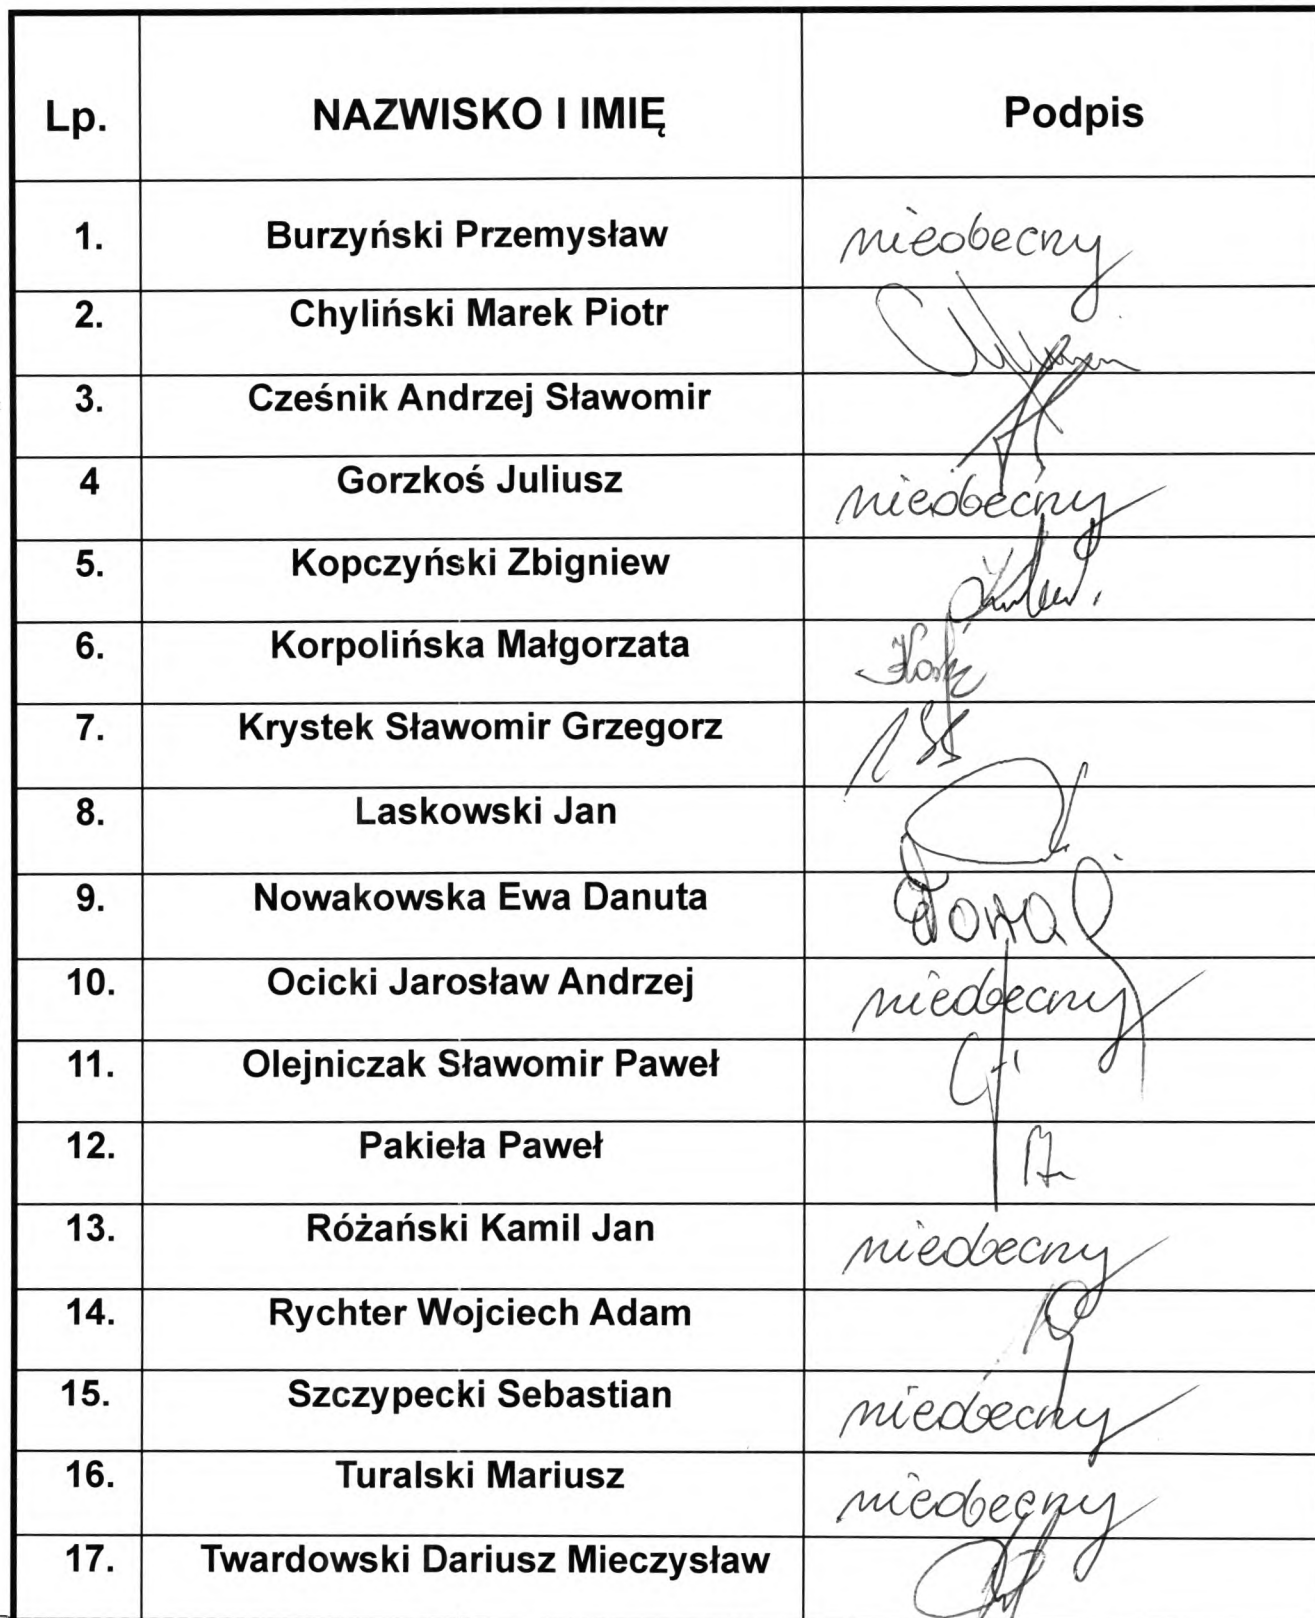 Lp. NAZWISKO I IMIĘ Podpis
1. Burzyński Przemysław nieobecny
2. Chyliński Marek Piotr
3. Cześnik Andrzej Sławomir
4 Gorzkoś Juliusz nieobecny
5. Kopczyński Zbigniew
6. Korpolińska Małgorzata
7. Krystek Sławomir Grzegorz
8. Laskowski Jan
9. Nowakowska Ewa Danuta
10. Ocicki Jarosław Andrzej nieobecny
11. Olejniczak Sławomir Paweł
12. Pakieła Paweł
13. Różański Kamil Jan nieobecny
14. Rychter Wojciech Adam
15. Szczypecki Sebastian nieobecny
16. Turalski Mariusz nieobecny
17. Twardowski Dariusz Mieczysław